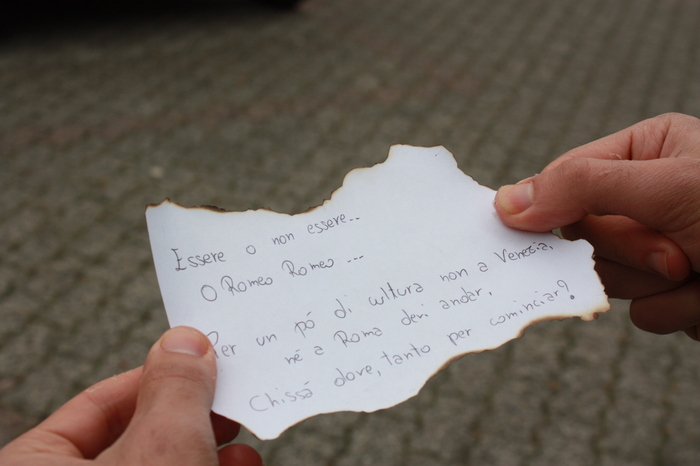 Essere o non essere..
O Romeo Romeo ...
Per un pó di cultura non a Venezia,
né a Roma devi andar.
Chissá dove, tanto per cominciar?